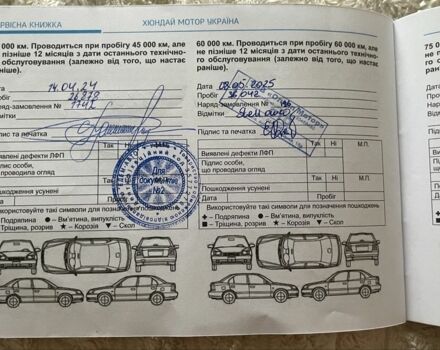 РВІСНА КНИЖКА
ХЮНДАЙ МОТОР УКРАЇНА
000 км. Проводиться при пробігу 45 000 км, але
не пізніше 12 місяців з дати останнього технічно-
го обслуговування (залежно від того, що настає
раніше).
14.04.24
Пробіг
Наряд-замовлення №
Підпис та печатка
Виявлені дефекти ЛФП
Так
Ні
М.П.
Для документів
№2
Пошкодження усунені
Використовуйте такі символи для позначення пошкоджень
+ – Подряпина ● – Вм'ятина, випуклість
■ – Тріщина, розрив ★ – Корозія ▼ – Скол
60 000 км. Проводиться при пробігу 60 000 км, але
не пізніше 12 місяців з дати останнього технічно-
го обслуговування (залежно від того, що настає
раніше).
Дата 08.05.2025
Пробіг 36042
Наряд-замовлення №
Відмітки
Підпис та печатка
Виявлені дефекти ЛФП
Так
Ні
М.П.
Підпис особи,
що проводила огляд
Пошкодження усунені
Дата
Пробіг
Використовуйте такі символи для позначення пошкоджень
+ – Подряпина ● – Вм'ятина, випуклість
■ – Тріщина, розрив ★ – Корозія ▼ – Скол
75 0
не п
го о
ран
Дата